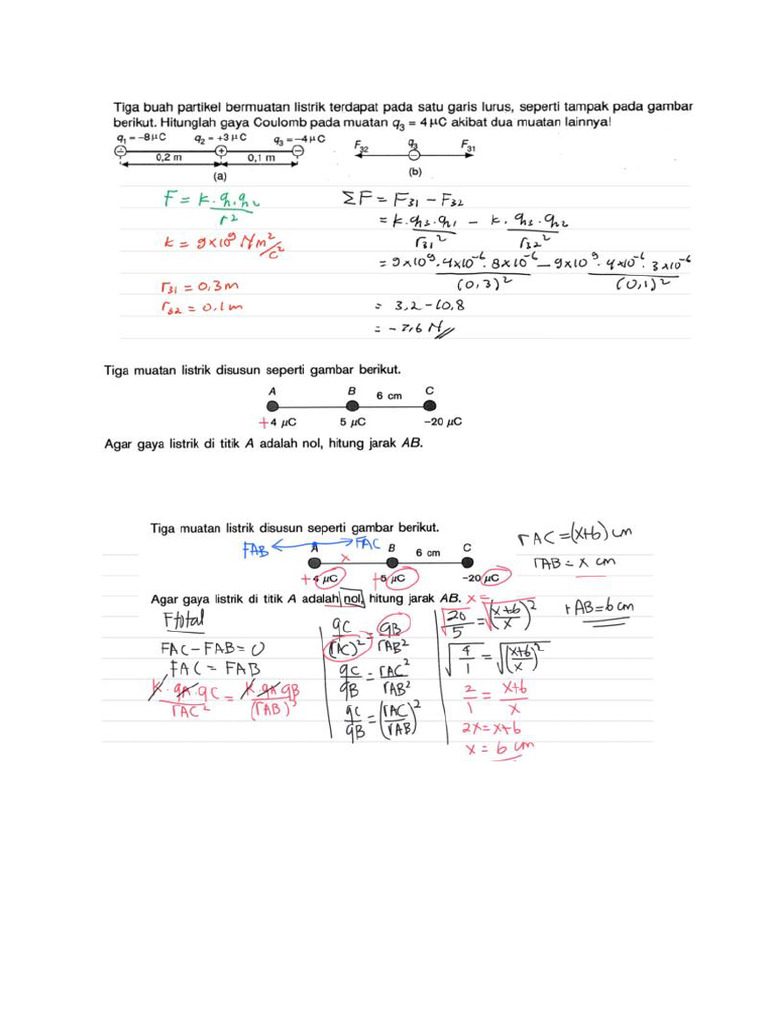 Tiga buah partikel bermuatan listrik terdapat pada satu garis lurus, seperti tampak pada gambar
berikut. Hitunglah gaya Coulomb pada muatan q₃ = 4 μC akibat dua muatan lainnya!
q₁ = –8μC q₂ = +3μC q₃ = –4μC
0,2 m 0,1 m
(a)
F₃₂ q₃ F₃₁
(b)
F = k.q₁.q₂/r²
k = 9×10⁹ Nm²/c²
r₃₁ = 0,3m
r₃₂ = 0,1m
ΣF = F₃₁ – F₃₂
= k.q₃.q₁/r₃₁² – k.q₃.q₂/r₃₂²
= 9×10⁹.4×10⁻⁶.8×10⁻⁶/(0,3)² – 9×10⁹.4×10⁻⁶.3×10⁻⁶/(0,1)²
= 3,2 – 10,8
= – 7,6 N
Tiga muatan listrik disusun seperti gambar berikut.
A B 6 cm C
+4 μC 5 μC –20 μC
Agar gaya listrik di titik A adalah nol, hitung jarak AB.
Tiga muatan listrik disusun seperti gambar berikut.
FAB FAC
A x B 6 cm C
+4 μC +5 μC –20 μC
rAC = (x+6) cm
rAB = x cm
Agar gaya listrik di titik A adalah nol, hitung jarak AB. x =
Ftotal
FAC – FAB = 0
FAC = FAB
k.qA.qC/rAC² = k.qA.qB/(rAB)²
qC/(rAC)² = qB/rAB²
qC/qB = rAC²/rAB²
qC/qB = (rAC/rAB)²
√20/5 = √(x+6/x)²
√4/1 = √(x+6/x)²
2/1 = x+6/x
2x = x+6
x = 6 cm
rAB = 6 cm